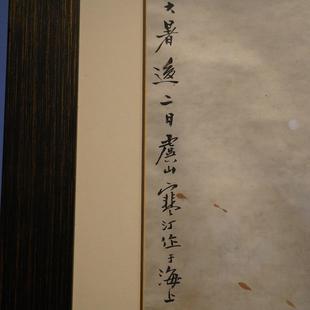 大暑后二日虞山寒汀作于海上